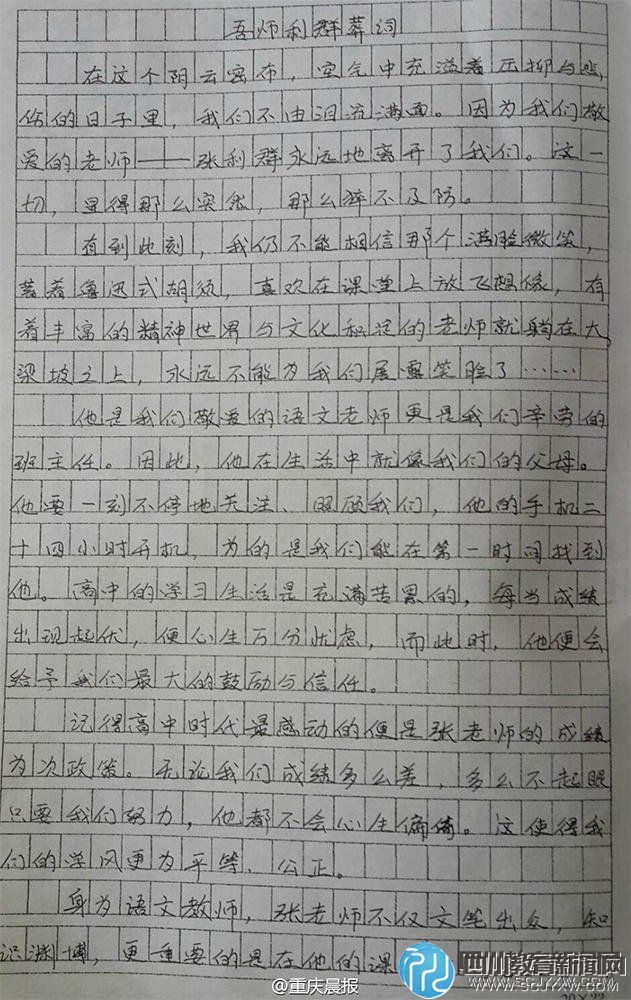 吾师利群葬词
在这个阴云密布，空气中充溢着压抑与悲
伤的日子里，我们不由泪流满面。因为我们敬
爱的老师——张利群永远地离开了我们。这一
切，显得那么突然，那么猝不及防。
直到此刻，我仍不能相信那个满脸微笑，
蓄着鲁迅式胡须，喜欢在课堂上放飞想像，有
着丰富的精神世界与文化积淀的老师就躺在大
梁坡之上，永远不能为我们展露笑脸了……
他是我们敬爱的语文老师更是我们辛劳的
班主任。因此，他在生活中就像我们的父母。
他要一刻不停地关注、照顾我们，他的手机二
十四小时开机，为的是我们能在第一时间找到
他。高中的学习生活是充满苦累的，每当成绩
出现起伏，便心生万分忧虑，而此时，他便会
给予我们最大的鼓励与信任。
记得高中时代最感动的便是张老师的成绩
为次政策。无论我们成绩多么差，多么不起眼
只要我们努力，他都不会心生偏倚。这使得我
们的学风更为平等、公正。
身为语文教师，张老师不仅文笔出众，知
识渊博，更重要的是在他的课
@重庆晨报
四川教育新闻网
WWW.SCJYXW.COM
20×22